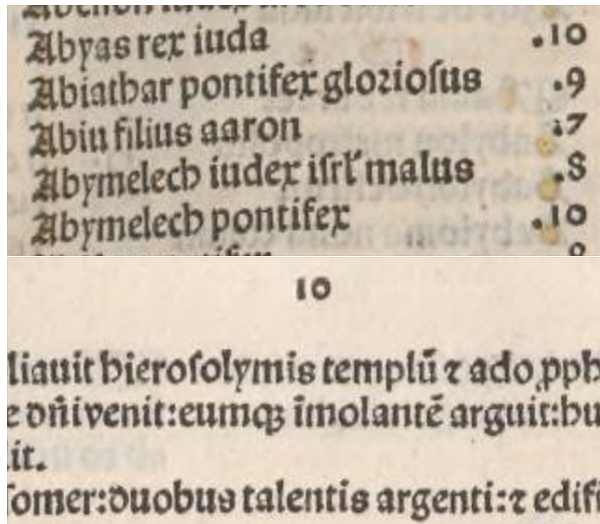 Abyas rex iuda .10
Abiathar pontifex glorioſus .9
Abiu filius aaron .7
Abymelech iudex iſrł malus .8
Abymelech pontifex .10
10
liauit hieroſolymis templū ⁊ ado ꝓph
e dñi venit:eumqꝫ īmolantē arguit:hu
it.
ſomer:duobus talentis argenti:⁊ edifi